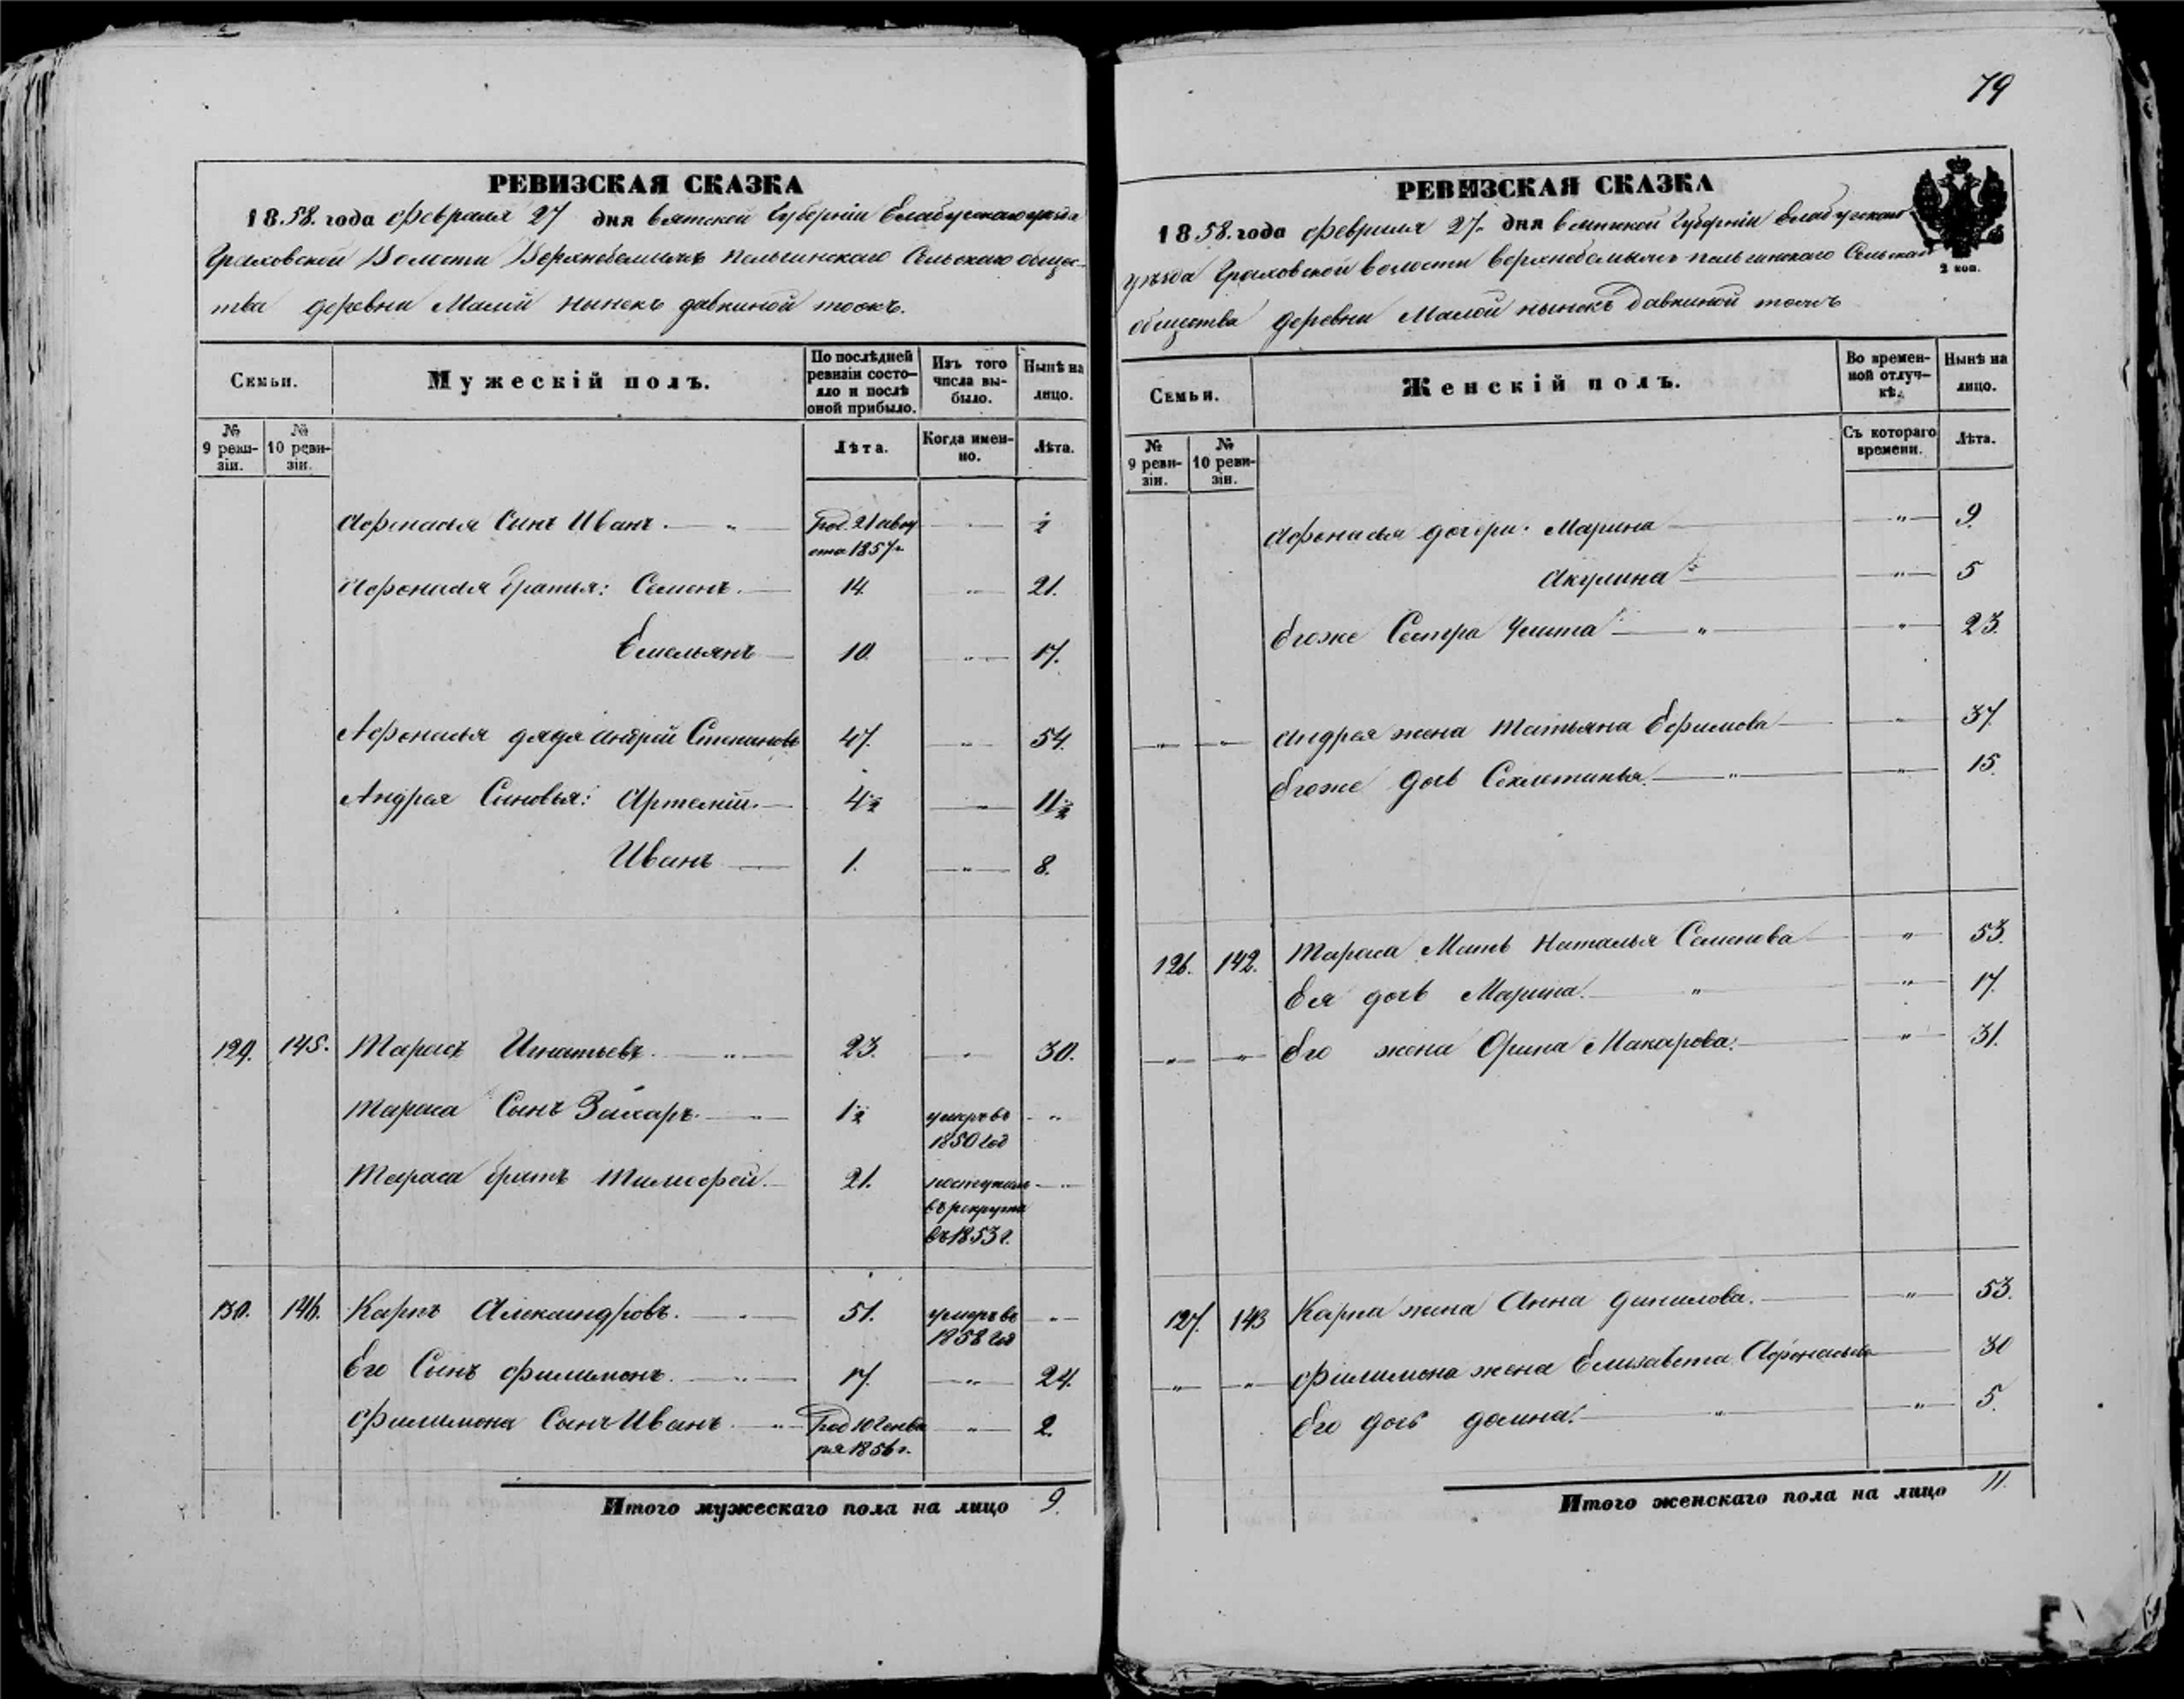 РЕВИЗСКАЯ СКАЗКА
1858. года Февраля 27 дня Вятской Губерніи Елабугскаго уѣзда
Граховской Волости Сельскаго общес-
тва деревни Малой нынекъ давкиной тоскъ.
Семьи.
Мужескій полъ.
По послѣдней ревизіи состо-яло и послѣ оной прибыло.
Изъ того числа вы-было.
Нынѣ на лицо.
№ 9 реви-зіи.
№ 10 реви-зіи.
Лѣта.
Когда имен-но.
Лѣта.
Афонасья Сынъ Иванъ. — „ — Род. 21 авгу — „ — ½
ста 1857 г.
Афонасья братья: Семенъ. — 14. — „ — 21.
Емельянъ — 10. — „ — 17.
Афонасья дядя Андрей Степановъ 47. — „ — 54.
Андрея Сыновья: Артемій. — 4½ — „ — 11½
Иванъ — 1. — „ — 8.
129. 145. Тарасъ Игнатьевъ. — „ — 23. — „ — 30.
Тараса Сынъ Захаръ. — „ — 1½ умеръ въ — „ —
1850 год
Тараса братъ Тимофей. — 21. поступилъ — „ —
въ рекруты
въ 1853 г.
130. 146. Карпъ Александровъ. — „ — 51. умеръ въ — „ —
1858 год
Его Сынъ Филимонъ. — „ — 17. — „ — 24.
Филимона Сынъ Иванъ. — „ — Род 10 Генва — „ — 2.
ря 1856 г.
Итого мужескаго пола на лицо 9.
79
РЕВИЗСКАЯ СКАЗКА
1858. года Февраля 27. дня Вятской Губерніи Елабугскаго
2 коп.
уѣзда Граховской волости Сельскаго
общества деревни Малой нынекъ Давкиной тоскъ
Семьи.
Женскій полъ.
Во времен-ной отлуч-кѣ.
Нынѣ на лицо.
№ 9 реви-зіи.
№ 10 реви-зіи.
Съ котораго времени.
Лѣта.
Афонасья дочери: Марина — „ — 9.
Акулина — „ — 5
Егоже Сестра Улита — „ — „ — 23.
— „ — „ — Андрея жена Татьяна Ефимова — „ — 37.
Егоже дочь Секлетинья. — „ — „ — 15.
126. 142. Тараса Мать Наталья Семенова — „ — 53.
Ея дочь Марина. — „ — „ — 17.
— „ — „ — Его жена Орина Макарова. — „ — 31.
127. 143 Карпа жена Анна Данилова. — „ — 53.
— „ — „ — Филимона жена Елизавета Афонасьева — 30
Его дочь Домна. — „ — „ — 5.
Итого женскаго пола на лицо 11.